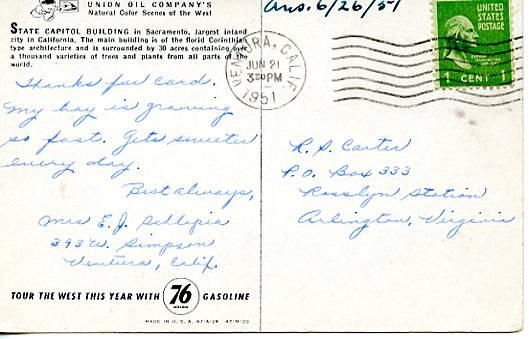 UNION OIL COMPANY'S
Natural Color Scenes of the West
STATE CAPITOL BUILDING in Sacramento, largest inland
city in California. The main building is of the florid Corinthian
type architecture and is surrounded by 30 acres containing over
a thousand varieties of trees and plants from all parts of the
world.
Thanks for card.
My boy is growing
so fast. Gets sweeter
every day.
Best always,
Mrs E. J.
393 W. Simpson
Ventura, Calif.
TOUR THE WEST THIS YEAR WITH 76 GASOLINE
MADE IN U.S.A.
Ans. 6/26/51
VENTURA, CALIF.
JUN 21
3 30 PM
1951
UNITED
STATES
POSTAGE
1 CENT 1
R. S. Carter
P.O. Box 333
Rosslyn Station
Arlington, Virginia